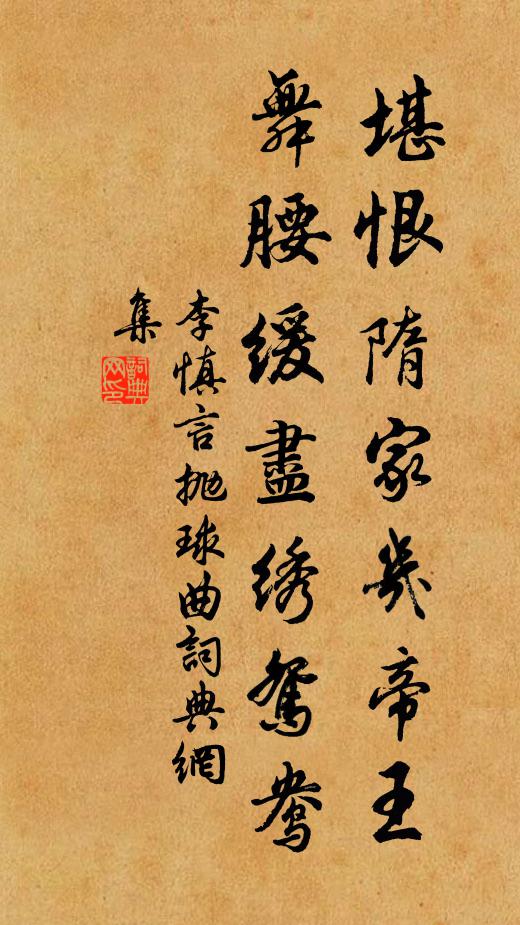 堪恨隋家幾帝王
舞腰緩盡綉鴛鴦
李慎言抛球曲詞典網
集
詞典
网印